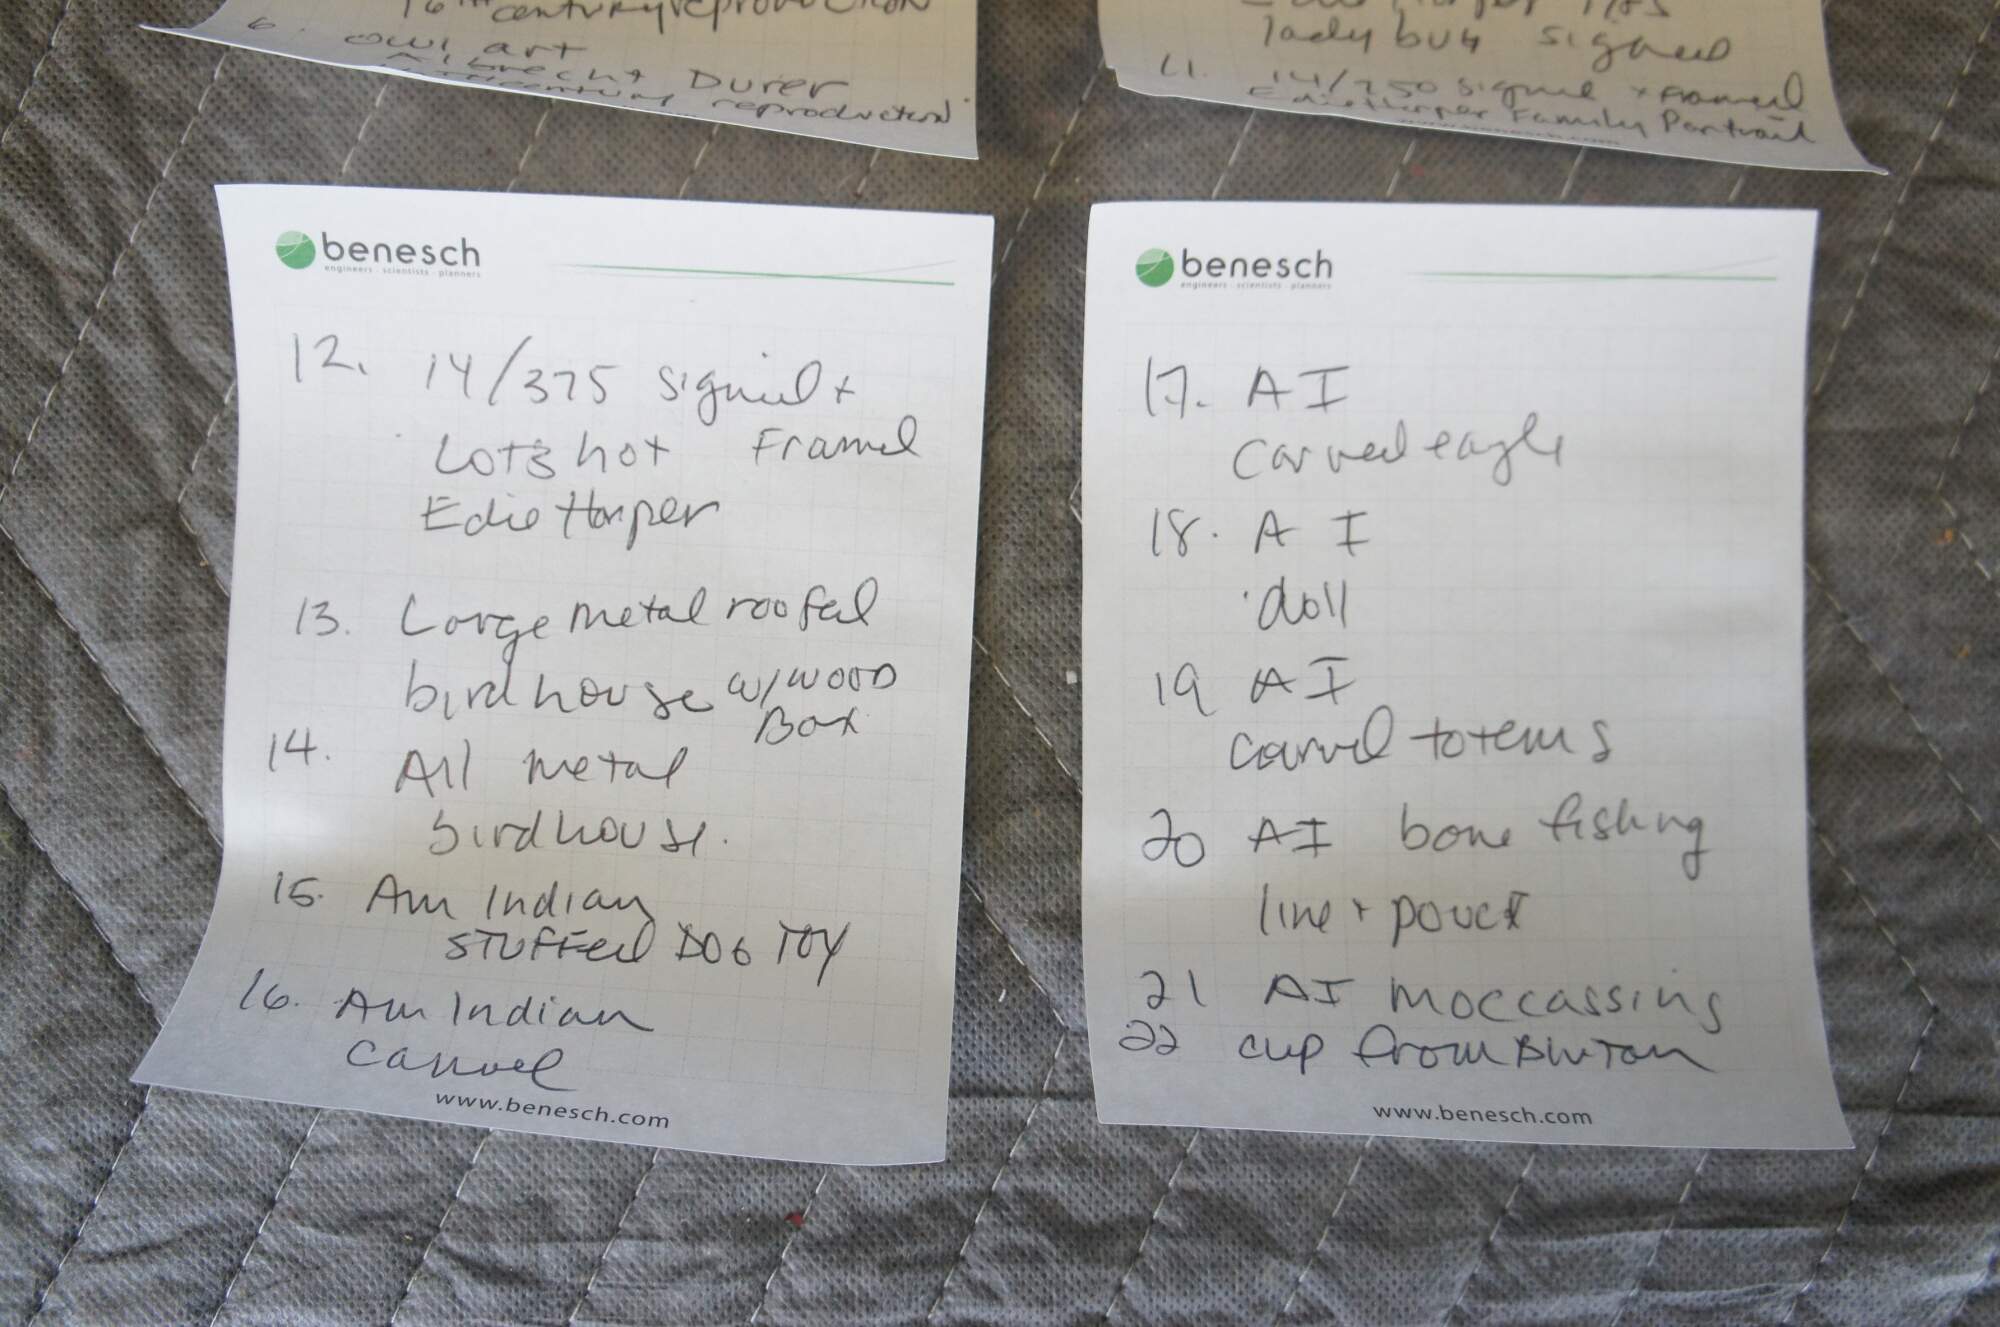 16th century reproduction
6. owl art
Albrecht Durer
century reproduction
lady bug signed
11. 14/750 signed + Framed
Edie Harper Family Portrait
benesch
engineers · scientists · planners
12. 14/375 signed +
Lots hot Framed
Edie Harper
13. Large metal roofed
birdhouse w/WOOD
Box
14. All metal
birdhouse.
15. Am Indian
STUFFed DOG TOY
16. Am Indian
Carved
www.benesch.com
benesch
engineers · scientists · planners
17. AI
Carved eagle
18. AI
doll
19 AI
carved totems
20 AI bone fishing
line +
21 AI moccassins
22 cup from
www.benesch.com